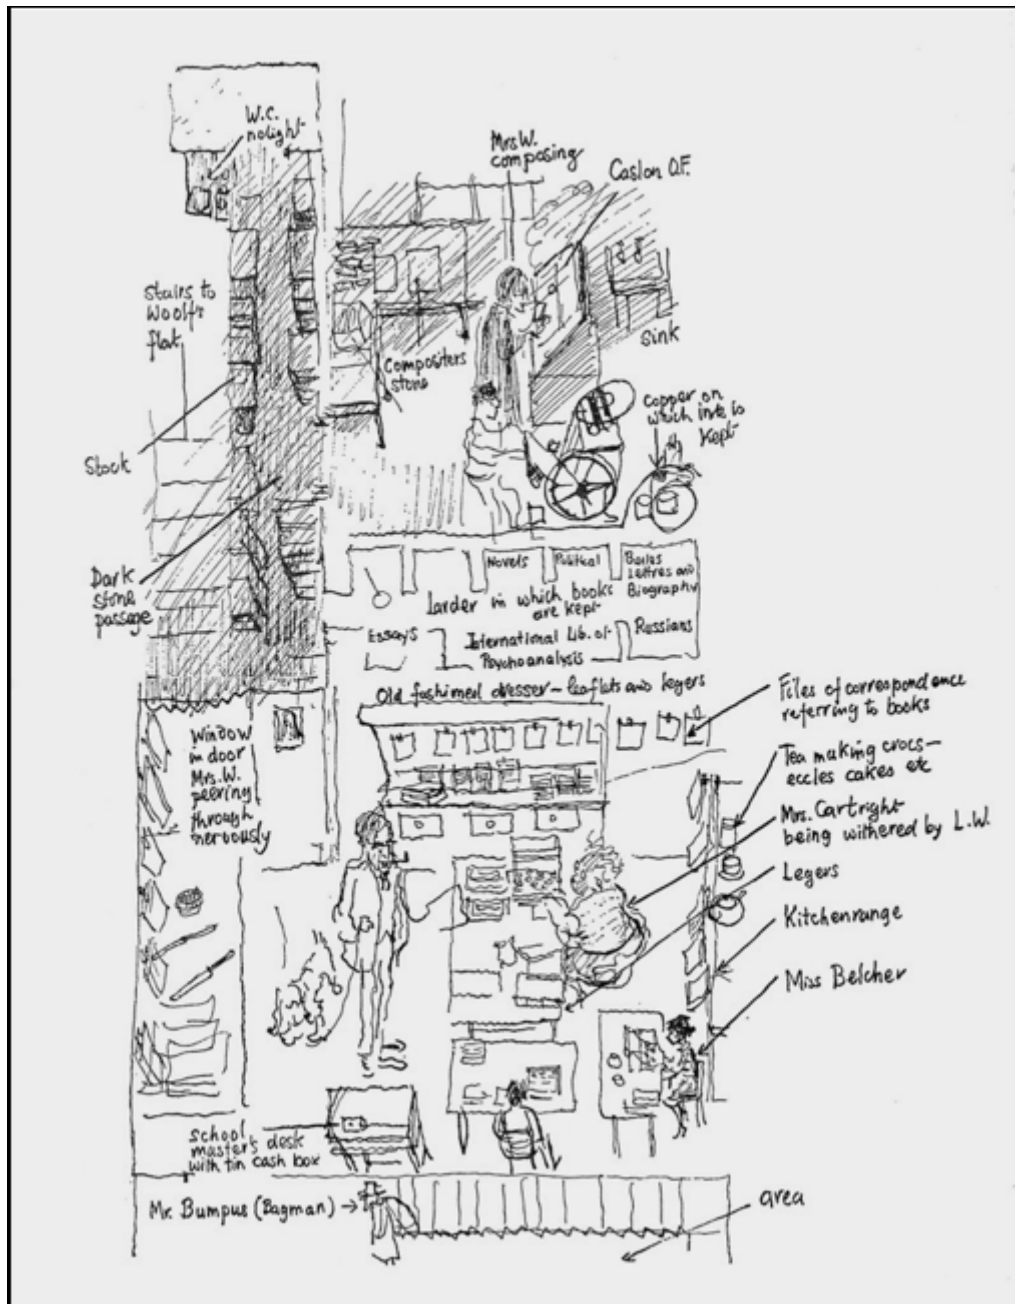 W.C.
no light
Mrs W.
composing
Caslon O.F.
Stairs to
Woolf's
flat
Sink
Compositers
stone
copper on
which ink is
kept
Stock
Dark
stone
passage
Novels
Political
Belles
Lettres and
Biography
Larder in which books
are kept
Essays
International Lib. of
Psychoanalysis
Russians
Old fashioned dresser - leaflats and legers
Files of correspondence
referring to books
Window
in door
Mrs. W.
peering
through
nervously
Tea making crocs -
eccles cakes etc
Mrs. Cartright
being withered by L.W.
Legers
Kitchenrange
Miss Belcher
school
master's desk
with tin cash box
Mr. Bumpus (Bagman)
area